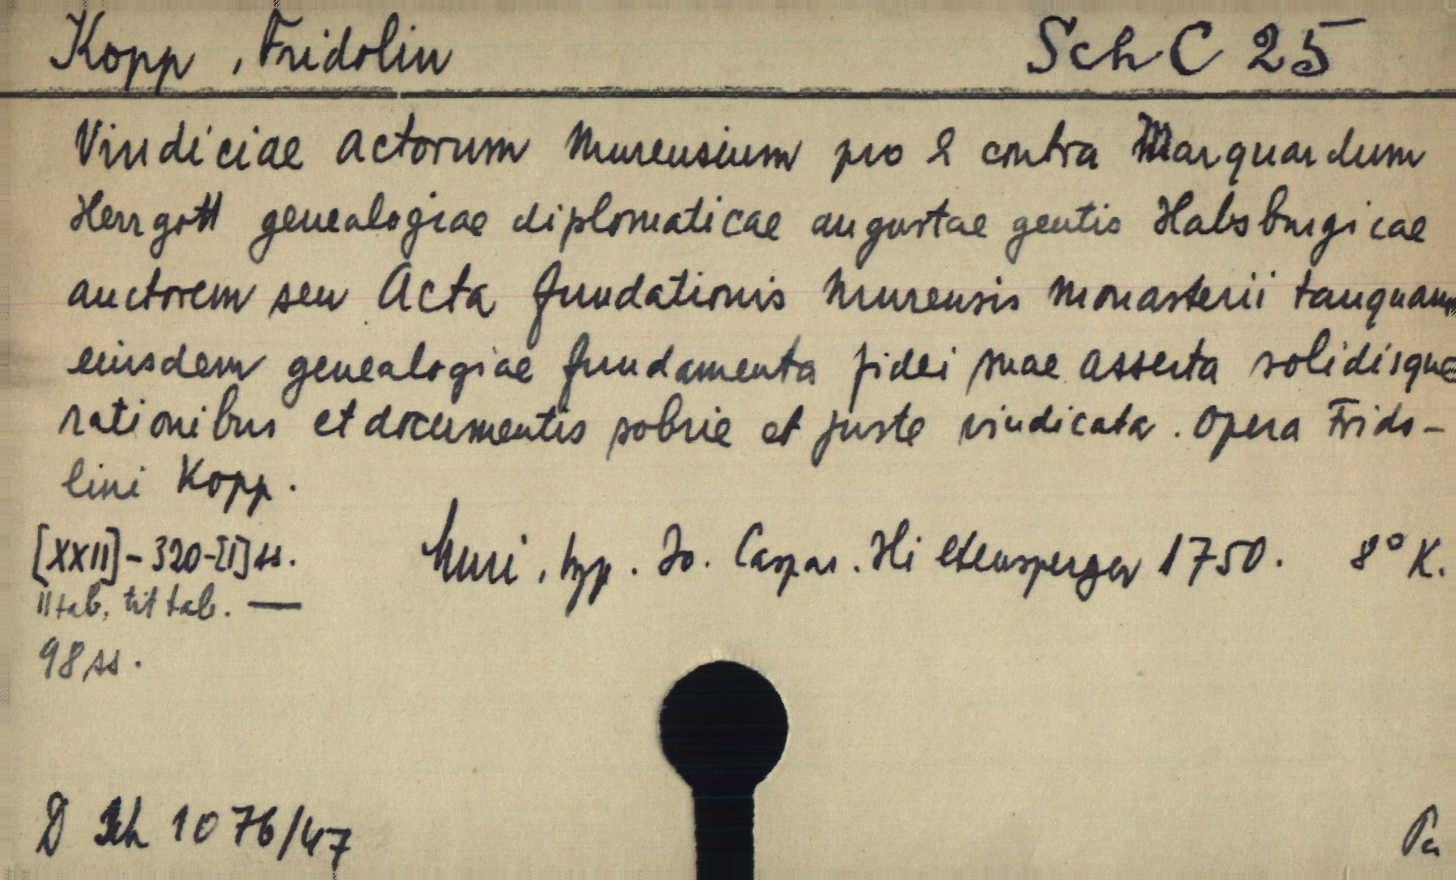 Kopp, Fridolin
Sch C 25
Vindiciae actorum Murensium pro & contra Marquardum
Herrgott genealogiae diplomaticae augustae gentis Habsburgicae
auctorem seu Acta fundationis Murensis monasterii tanquam
eiusdem genealogiae fundamenta fidei suae asserta solidisque
rationibus et documentis sobrie et juste vindicata. Opera Frido-
lini Kopp.
[XXII]-320-[I] ss.
Muri, typ. Jo. Caspar. Hiltensperger 1750. 8° K.
II tab, tit tab. —
98 ss.
D Sch 1076/47
Pa